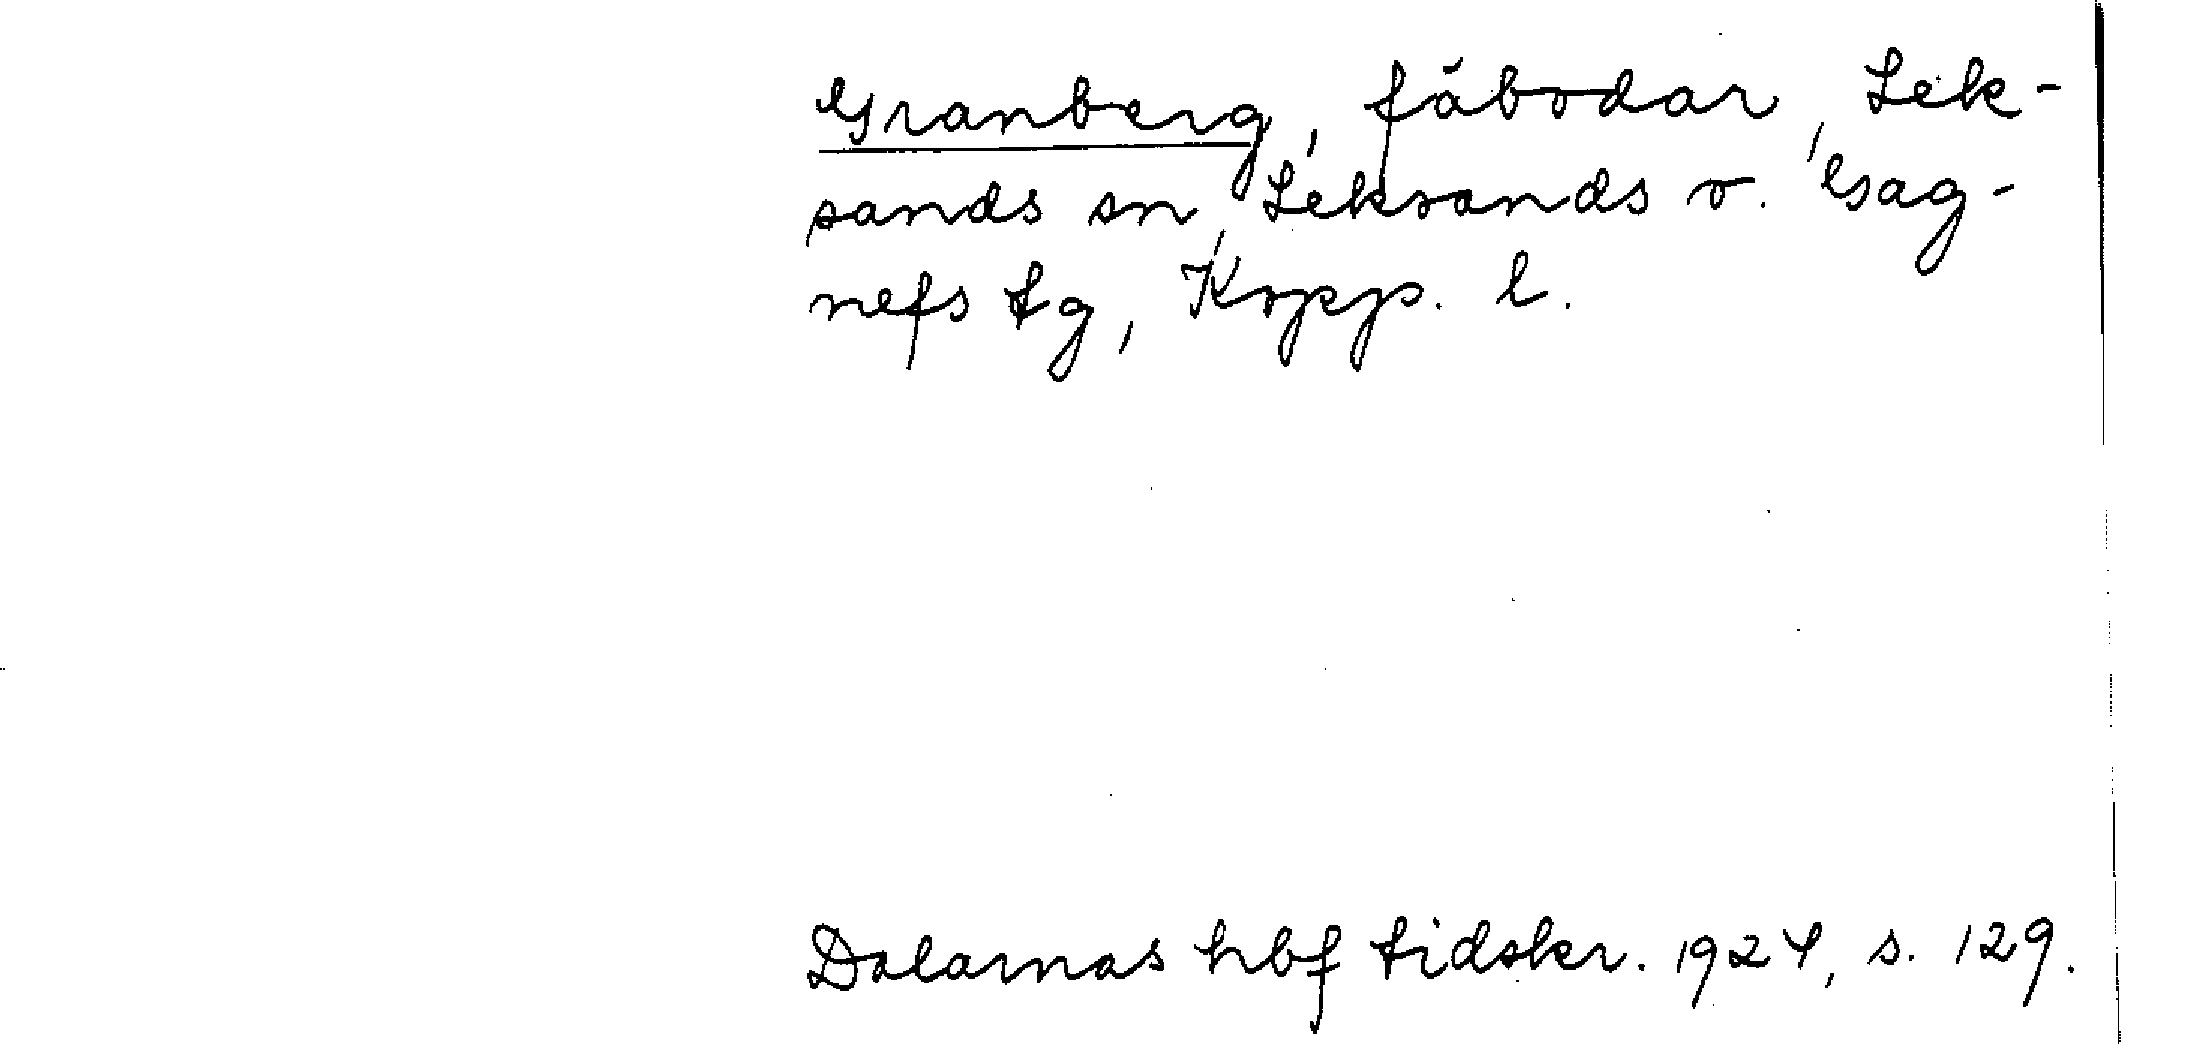 Granberg, fäbodar, Lek-
sands sn, Leksands o. Gag-
nefs tg, Kopp. l.
Dalarnas hbf tidskr. 1924, s. 129.